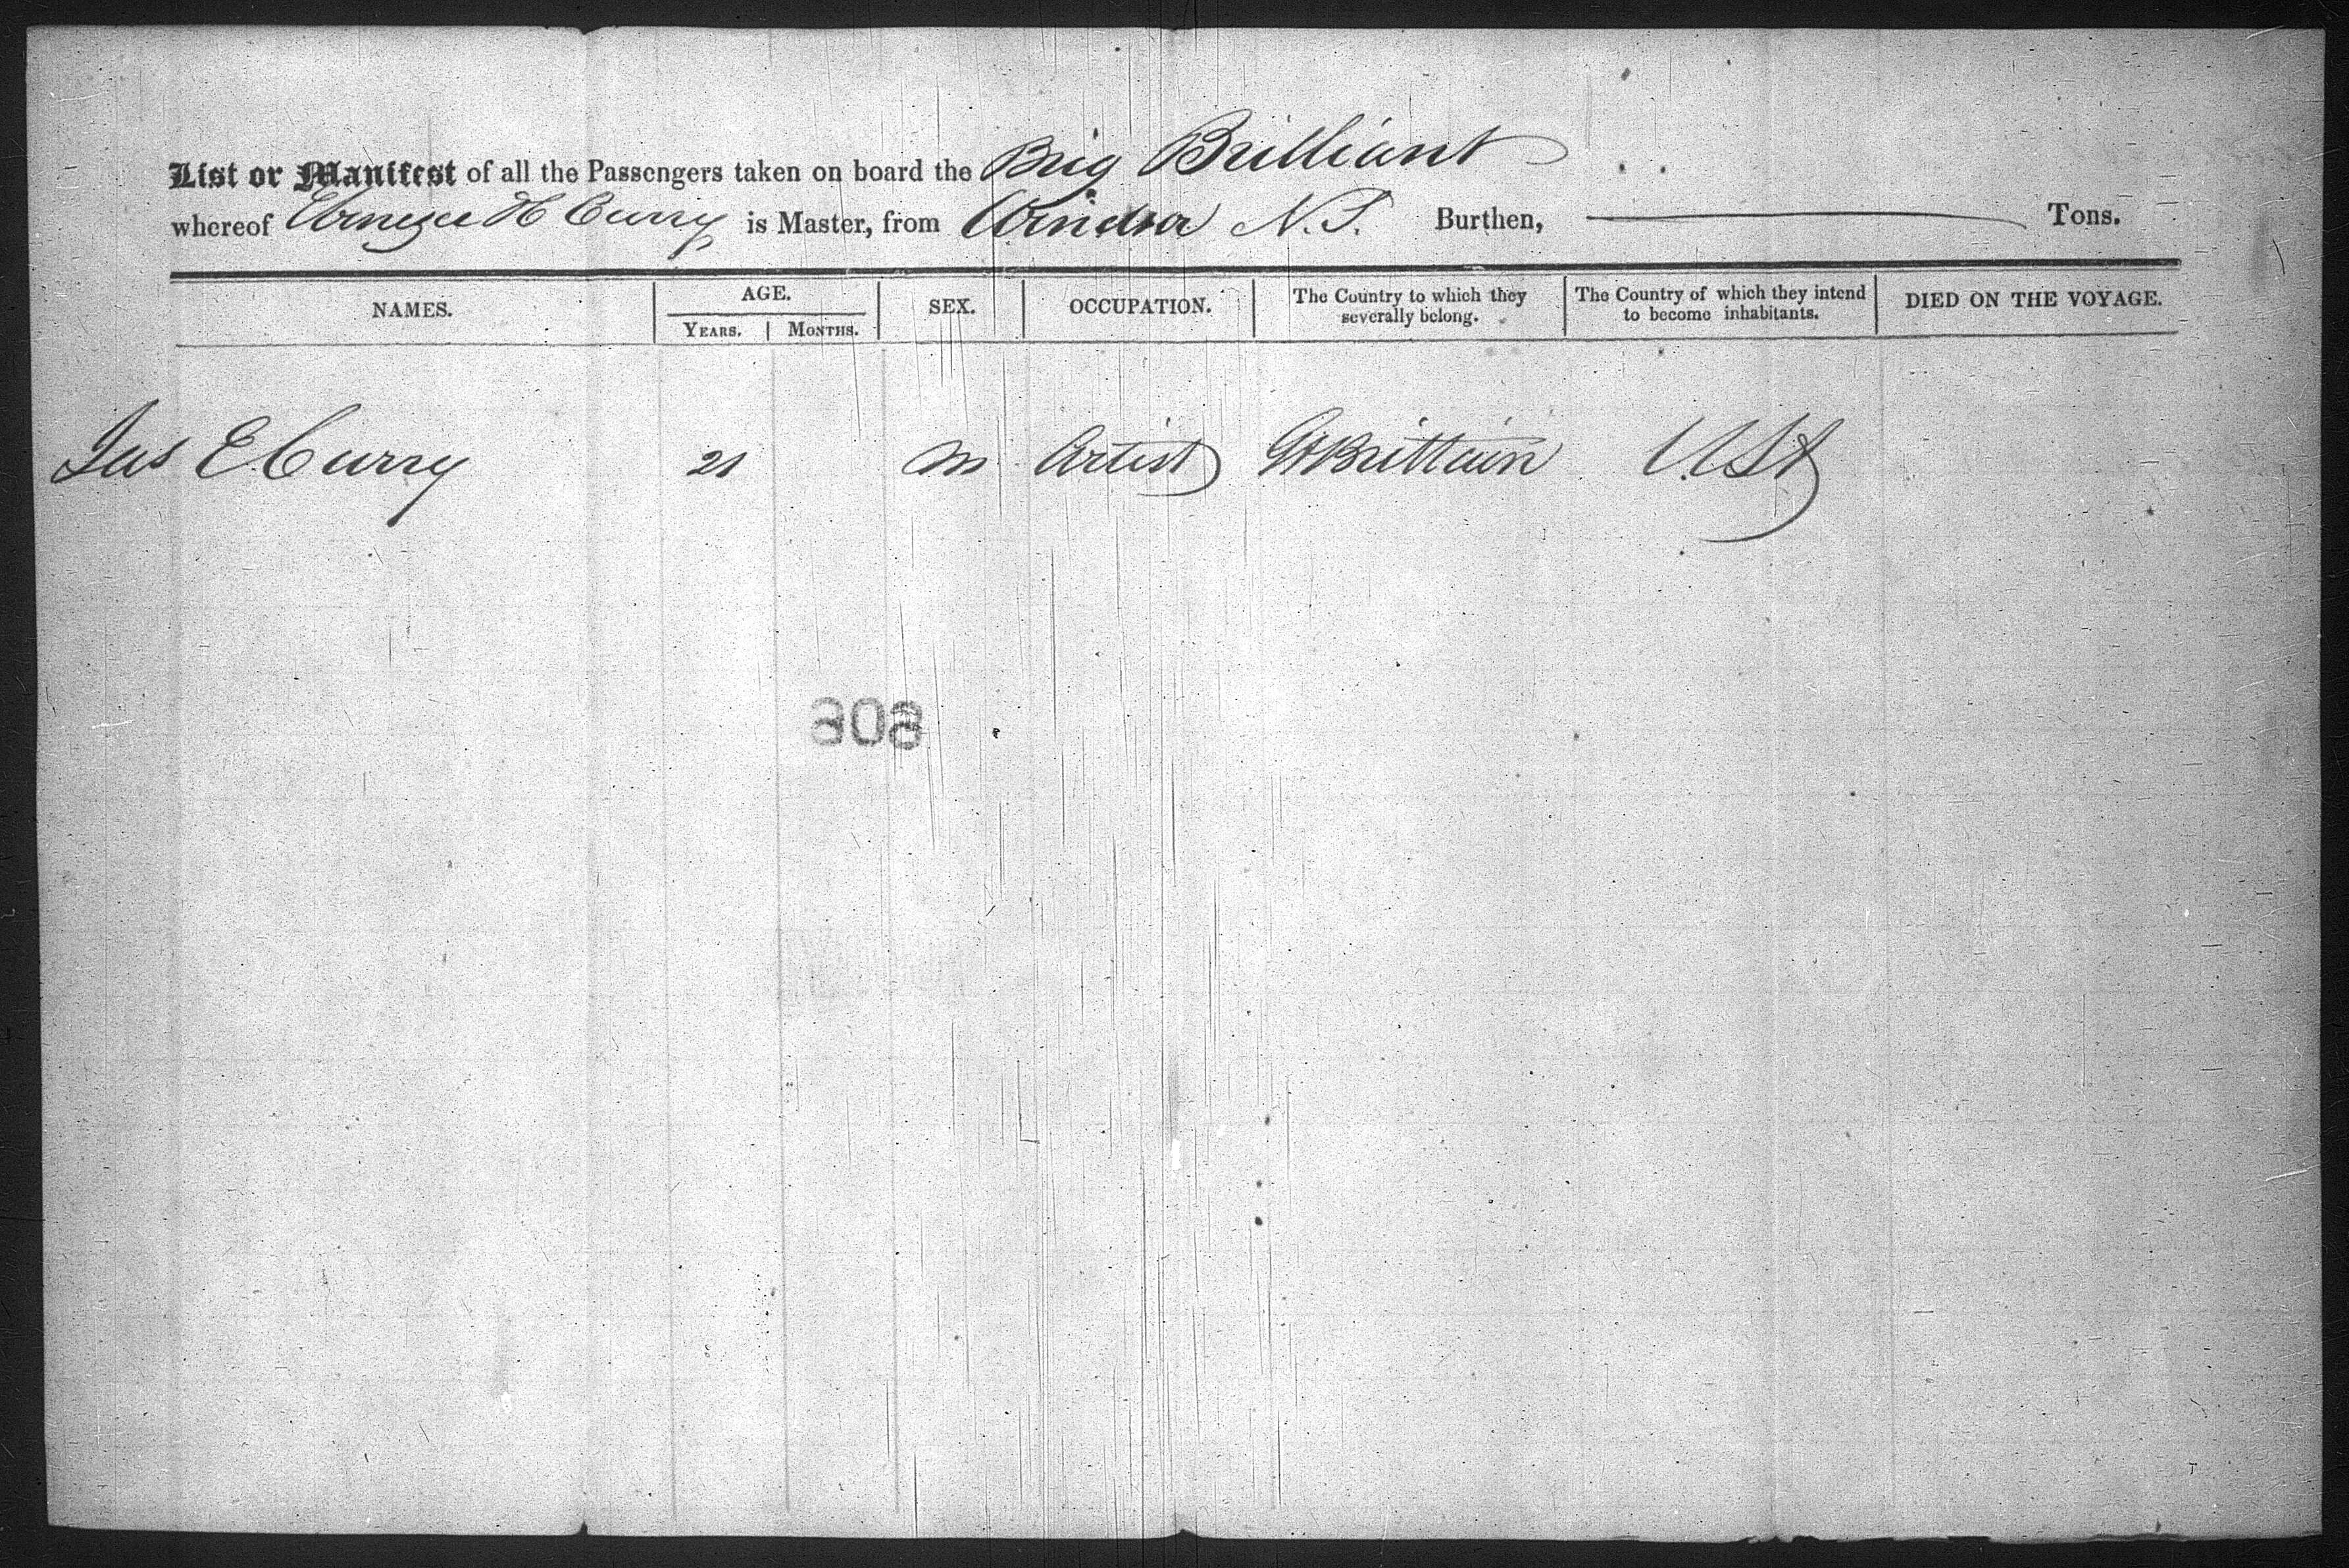 List or Manifest of all the Passengers taken on board the Brig Brilliant
whereof Ebenezer H Curry is Master, from Windsor N.S. Burthen, Tons.
NAMES. AGE. YEARS. MONTHS. SEX. OCCUPATION. The Country to which they severally belong. The Country of which they intend to become inhabitants. DIED ON THE VOYAGE.
Jas E Curry 21 M Artist Gt Brittain USA